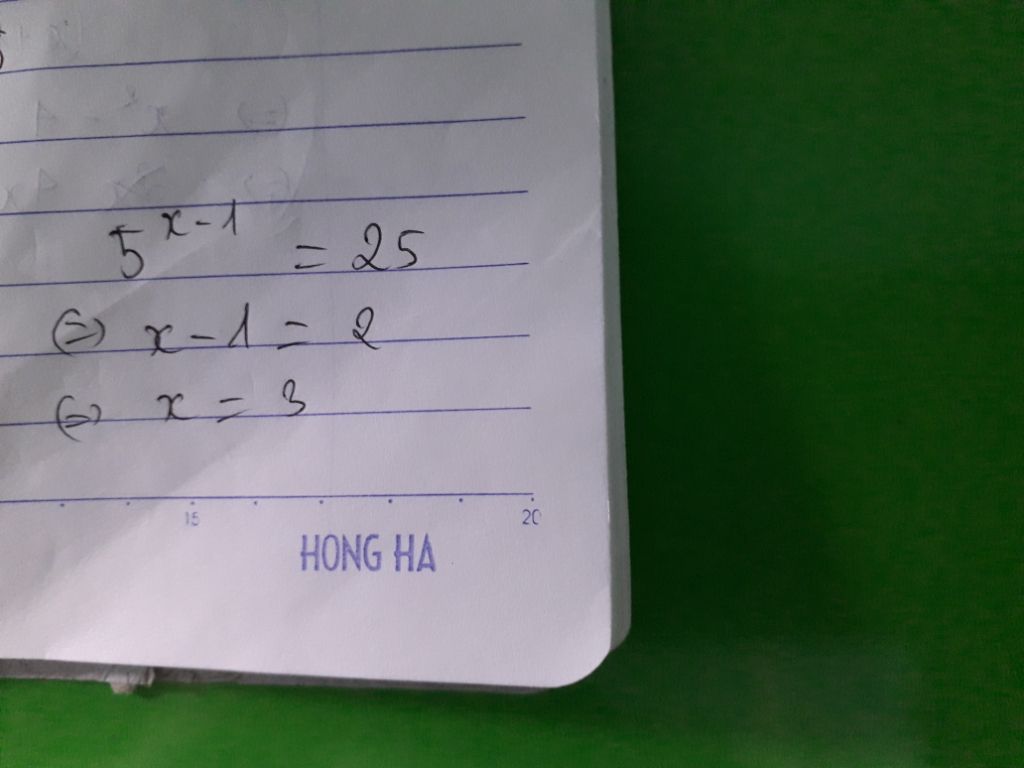 5^{x-1} = 25
⇔ x - 1 = 2
⇔ x = 3
15 20
HONG HA